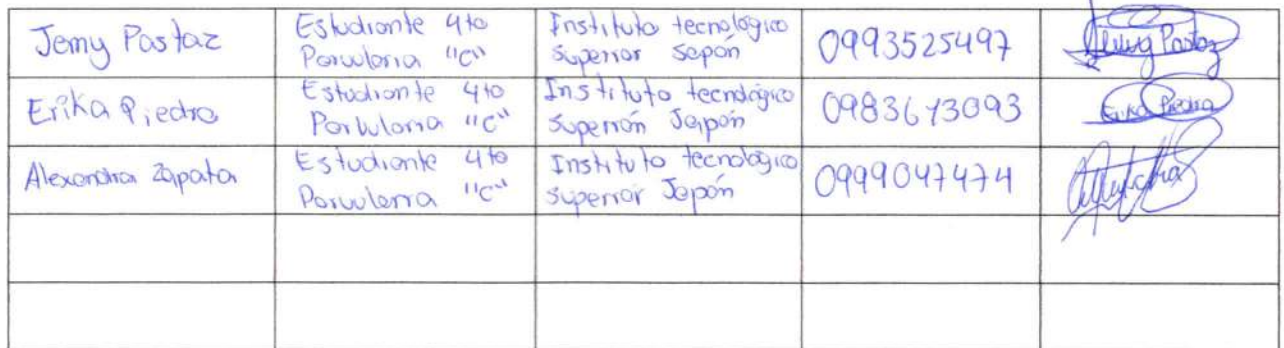 Jemy Pastaz
Estudiante 4to
Parvularia "C"
Instituto tecnológico
Superior Sapón
0993525497
Jemy Pastaz
Erika Piedra
Estudiante 4to
Parvularia "C"
Instituto tecnológico
Superión Japón
0983673093
Erika Piedra
Alexandra Zapata
Estudiante 4to
Parvularia "C"
Instituto tecnológico
Superior Japón
0999047474